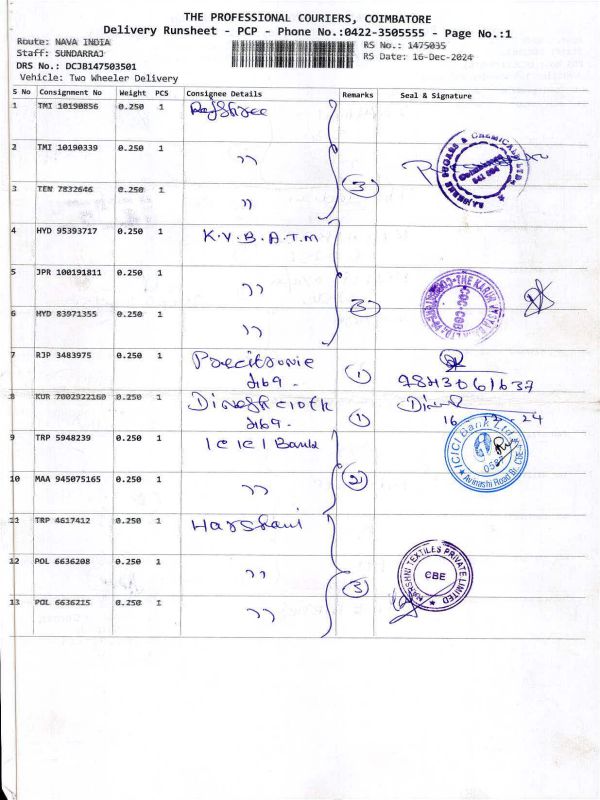 THE PROFESSIONAL COURIERS, COIMBATORE
Delivery Runsheet - PCP - Phone No.:0422-3505555 - Page No.:1
Route: NAVA INDIA
RS No.: 1475035
Staff: SUNDARRAJ
RS Date: 16-Dec-2024
DRS No.: DCJB147503501
Vehicle: Two Wheeler Delivery
S No Consignment No Weight PCS Consignee Details Remarks Seal & Signature
1 TMI 10190856 0.250 1 Rajshree
2 TMI 10190339 0.250 1 ,,
3 TEN 7832646 0.250 1 ,, 3
4 HYD 95393717 0.250 1 K.V.B.A.T.M
5 JPR 100191811 0.250 1 ,,
6 HYD 83971355 0.250 1 ,, 3
7 RJP 3483975 0.250 1 1
9843061637
8 KUR 7002922160 0.250 1 Dinesh cloth 1
16-12-24
9 TRP 5948239 0.250 1 ICICI Bank
ICICI Bank Ltd
Avinashi Road Br. CBE
10 MAA 945075165 0.250 1 ,, 2
11 TRP 4617412 0.250 1 Harshni
12 POL 6636208 0.250 1 ,,
HARSHNI TEXTILES PRIVATE LIMITED
CBE
13 POL 6636215 0.250 1 ,, 3